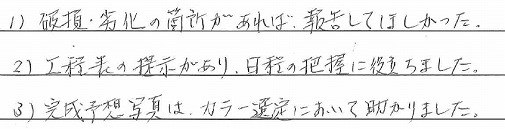 1) 破損・劣化の箇所があれば、報告してほしかった。
2) 工程表の提示があり、日程の把握に役立ちました。
3) 完成予想写真は、カラー選定において助かりました。